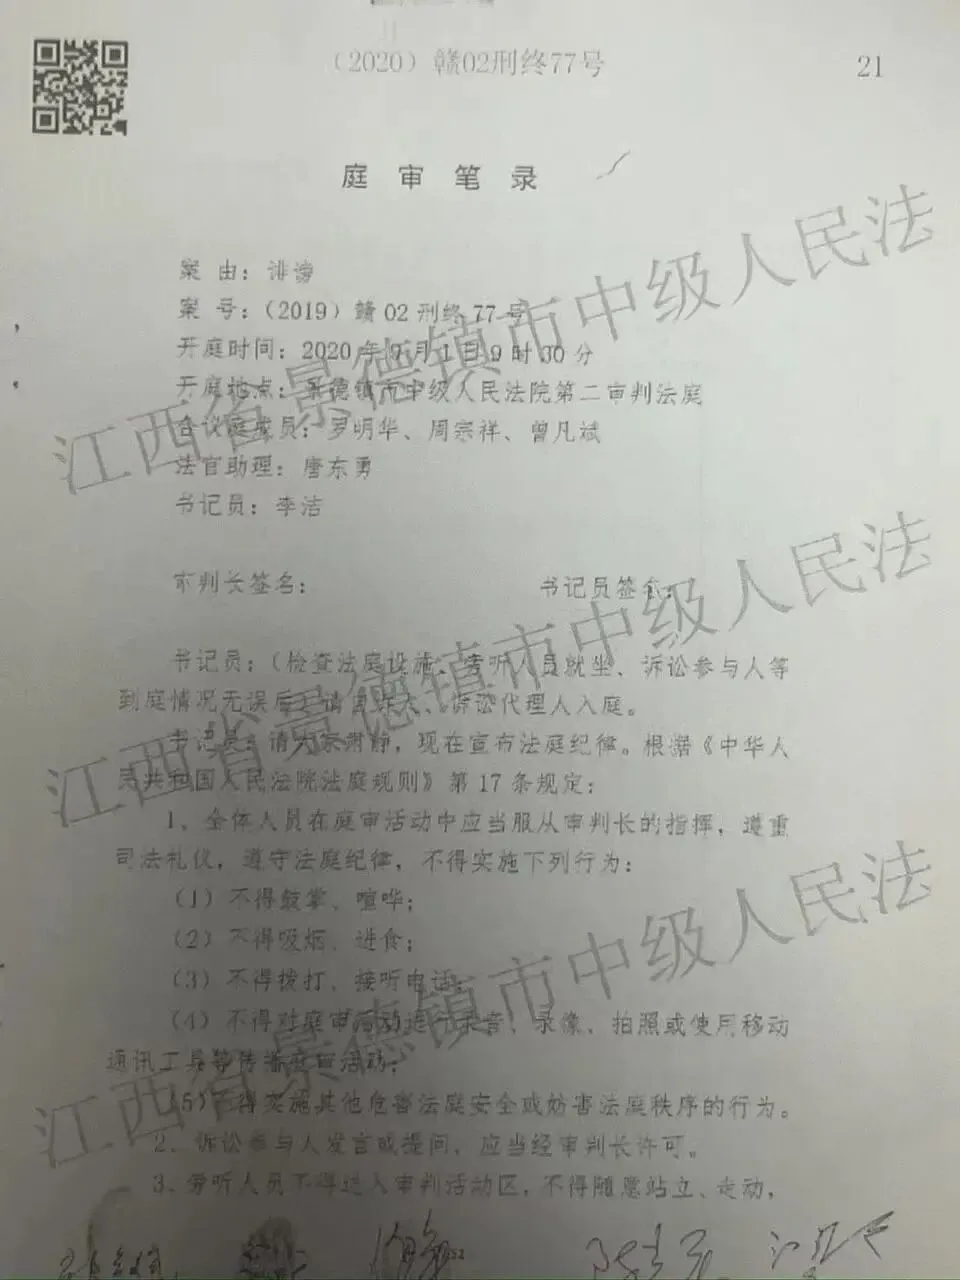 （2020）赣02刑终77号
21
庭审笔录
案由：诽谤
案号：（2019）赣02刑终77号
开庭时间：2020年7月1日9时30分
开庭地点：景德镇市中级人民法院第二审判法庭
合议庭成员：罗明华、周宗祥、曾凡斌
法官助理：唐东勇
书记员：李洁
审判长签名： 书记员签名：
书记员：（检查法庭设施、旁听人员就坐、诉讼参与人等
到庭情况无误后）请 诉讼代理人入庭。
书记员：请大家肃静，现在宣布法庭纪律。根据《中华人
民共和国人民法院法庭规则》第17条规定：
1、全体人员在庭审活动中应当服从审判长的指挥，遵重
司法礼仪，遵守法庭纪律，不得实施下列行为：
（1）不得鼓掌、喧哗；
（2）不得吸烟、进食；
（3）不得拨打、接听电话；
（4）不得对庭审活动进行录音、录像、拍照或使用移动
通讯工具等传播庭审活动；
（5）不得实施其他危害法庭安全或妨害法庭秩序的行为。
2、诉讼参与人发言或提问，应当经审判长许可。
3、旁听人员不得进入审判活动区，不得随意站立、走动，
江西省景德镇市中级人民法
江西省景德镇市中级人民法
江西省景德镇市中级人民法